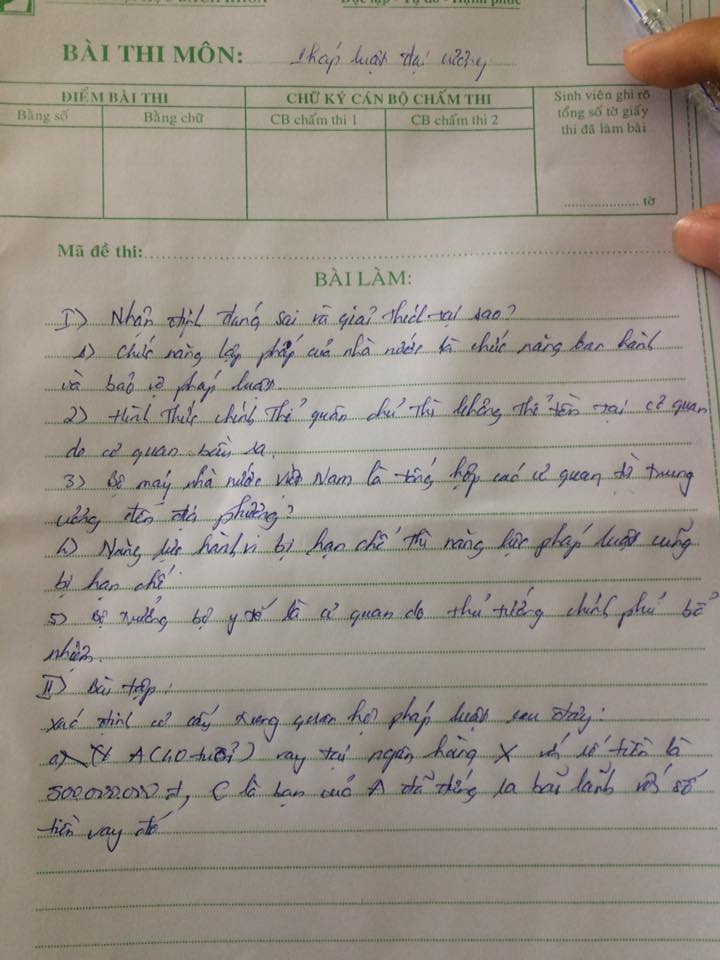 BÀI THI MÔN: Pháp luật đại cương
ĐIỂM BÀI THI
CHỮ KÝ CÁN BỘ CHẤM THI
Sinh viên ghi rõ
tổng số tờ giấy
thi đã làm bài
Bằng số
Bằng chữ
CB chấm thi 1
CB chấm thi 2
tờ
Mã đề thi:
BÀI LÀM:
I) Nhận định đúng sai và giải thích tại sao?
1) Chức năng lập pháp của nhà nước là chức năng ban hành
và bảo vệ pháp luật.
2) Hình thức chính thể quân chủ thì không thể tồn tại cơ quan
do cơ quan bầu ra.
3) Bộ máy nhà nước Việt Nam là tổng hợp các cơ quan từ trung
ương đến địa phương?
4) Năng lực hành vi bị hạn chế thì năng lực pháp luật cũng
bị hạn chế.
5) Bộ trưởng bộ y tế là cơ quan do thủ tướng chính phủ bổ
nhiệm.
II) Bài tập:
Xác định cơ cấu trong quan hệ pháp luật sau đây:
a) A (40 tuổi) vay tại ngân hàng X với số tiền là
500.000.000 đ, C là bạn của A đã đứng ra bảo lãnh với số
tiền vay đó